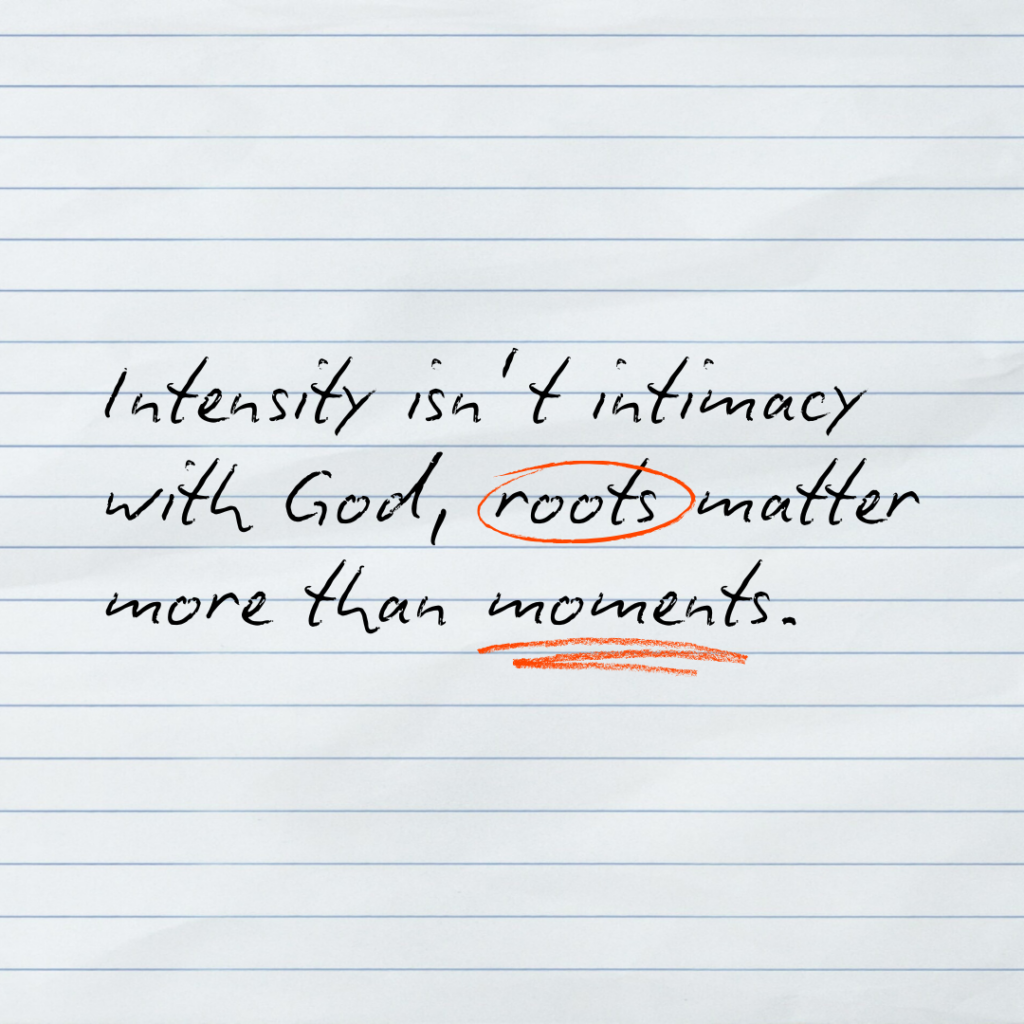 Intensity isn't intimacy
with God, roots matter
more than moments.